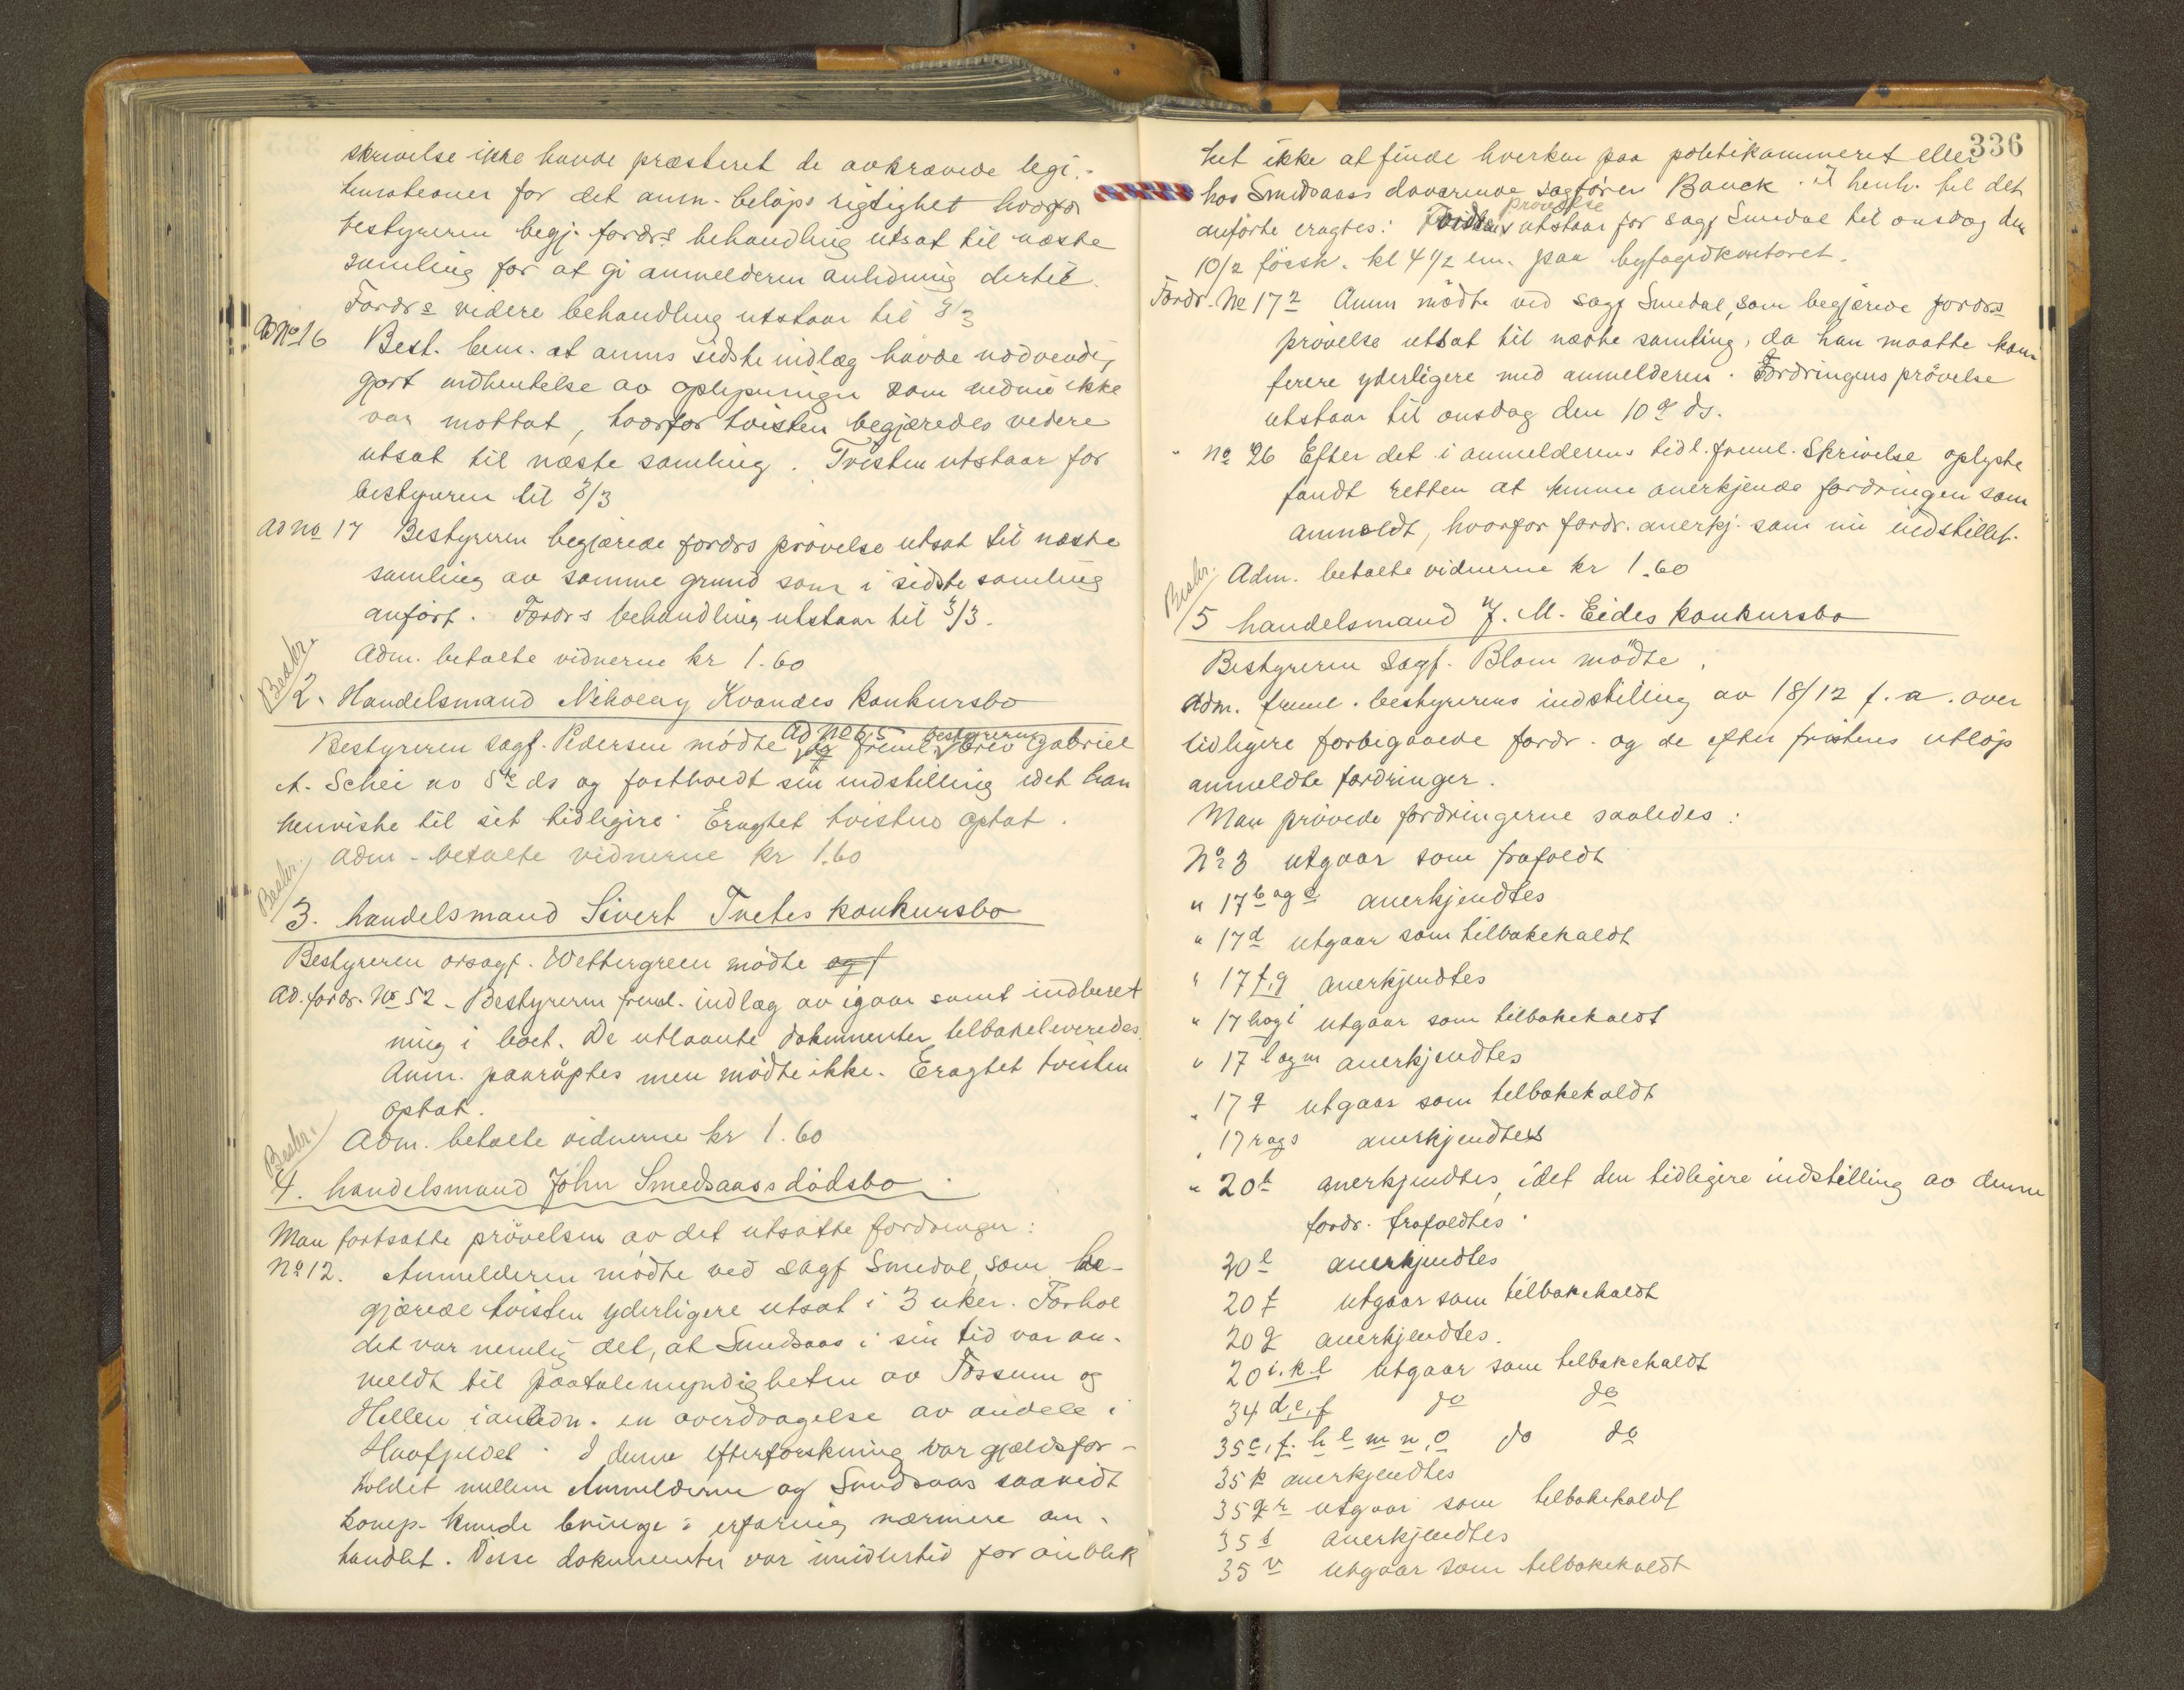 skrivelse ikke havde præsteret de avkrævede legi-
timationer for det anm. beløps rigtighet hvorfor
bestyreren begj. fordrs behandling utsat til næste
samling for at gi anmelderen anledning dertil.
Fordrs videre behandling utstaar til 3/3
Ad No 16 Best. bem. at anms sidste indlæg havde nødvendig
gjort indhentelse av oplysninger som endnu ikke
var mottat, hvorfor tvisten begjæredes videre
utsat til næste samling. Tvisten utstaar for
bestyreren til 3/3
Ad No 17 Bestyreren begjærede fordrs prøvelse utsat til næste
samling av samme grund som i sidste samling
anført. Fordrs behandling utstaar til 3/3.
Adm. betalte vidnerne kr 1.60
Beskr.
2. Handelsmand Nikolay Kvandes konkursbo
Ad No 65 bestyreren
Bestyreren sagf. Pedersen mødte og freml. brev Gabriel
A. Schei av 5te ds og fastholdt sin indstilling idet han
henviste til sit tidligere. Eragtet tvisten optat.
Adm. betalte vidnerne kr 1.60
Beskr.
3. handelsmand Sivert Tvetes konkursbo
Bestyreren orsagf. Wettergreen mødte og f
Ad. fordr. No 52 - Bestyreren freml. indlæg av igaar samt indberet
ning i boet. De utlaante dokumenter tilbakeleveredes.
Anm. paaroptes men mødte ikke. Eragtet tvisten
optat.
Adm. betalte vidnerne kr 1.60
Beskr.
4. handelsmand John Smedsaass dødsbo.
Man fortsatte prøvelsen av det utsatte fordringer:
No 12. Anmelderen mødte ved sagf Smedal, som be-
gjærede tvisten yderligere utsat i 3 uker. Forhol
det var nemlig det, at Smedsaas i sin tid var an-
meldt til paatalemyndigheten av Fossum og
Hellen i anledn. en overdragelse av andele i
Havfjeldet. I denne efterforskning var gjældsfor-
holdet mellem Anmelderne og Smedsaas saavidt
komp. kunde bringe i erfaring nærmere om-
handlet. Disse dokumenter var imidlertid for øieblik
336
ket ikke at finde hverken paa politikammeret eller
hos Smedsaass daværende sagfører Banck. I henh. til det
prøvelse
anførte eragtes: utstaar for sagf Smedal til onsdag den
10/2 førstk. kl 4 1/2 em. paa byfogdkontoret.
Fordr. No 17 2 Anm mødte ved sagf Smedal, som begjærede fordrs
prøvelse utsat til næste samling, da han maatte kon
ferere yderligere med anmelderen. Fordringens prøvelse
utstaar til onsdag den 10de ds.
" No 26 Efter det i anmelderens tidl. freml. skrivelse oplyste
fandt retten at kunne anerkjende fordringen som
anmeldt, hvorfor fordr. anerkj. som nu indstillet.
Adm. betalte vidnerne kr 1.60
Beskr.
5 handelsmand J. M. Eides konkursbo
Bestyreren sagf. Blom mødte.
Adm. freml. bestyrerens indstilling av 18/12 f. a. over
tidligere forbigaaede fordr. og de efter fristens utløp
anmeldte fordringer.
Man prøvede fordringerne saaledes:
No 3 utgaar som frafaldt
" 17 b og c anerkjendtes
" 17 d utgaar som tilbakekaldt
" 17 f, g anerkjendtes
" 17 h og i utgaar som tilbakekaldt
" 17 l og m anerkjendtes
" 17 q utgaar som tilbakekaldt
" 17 r og s anerkjendtes
" 20 b anerkjendtes, idet den tidligere indstilling av denne
fordr. frafaldtes.
20 e anerkjendtes
20 f utgaar som tilbakekaldt
20 g anerkjendtes.
20 i. k. l utgaar som tilbakekaldt
34 d, e, f do do
35 e, f. h l m n, o do do
35 p anerkjendtes
35 q r utgaar som tilbakekaldt
35 s anerkjendtes
35 v utgaar som tilbakekaldt